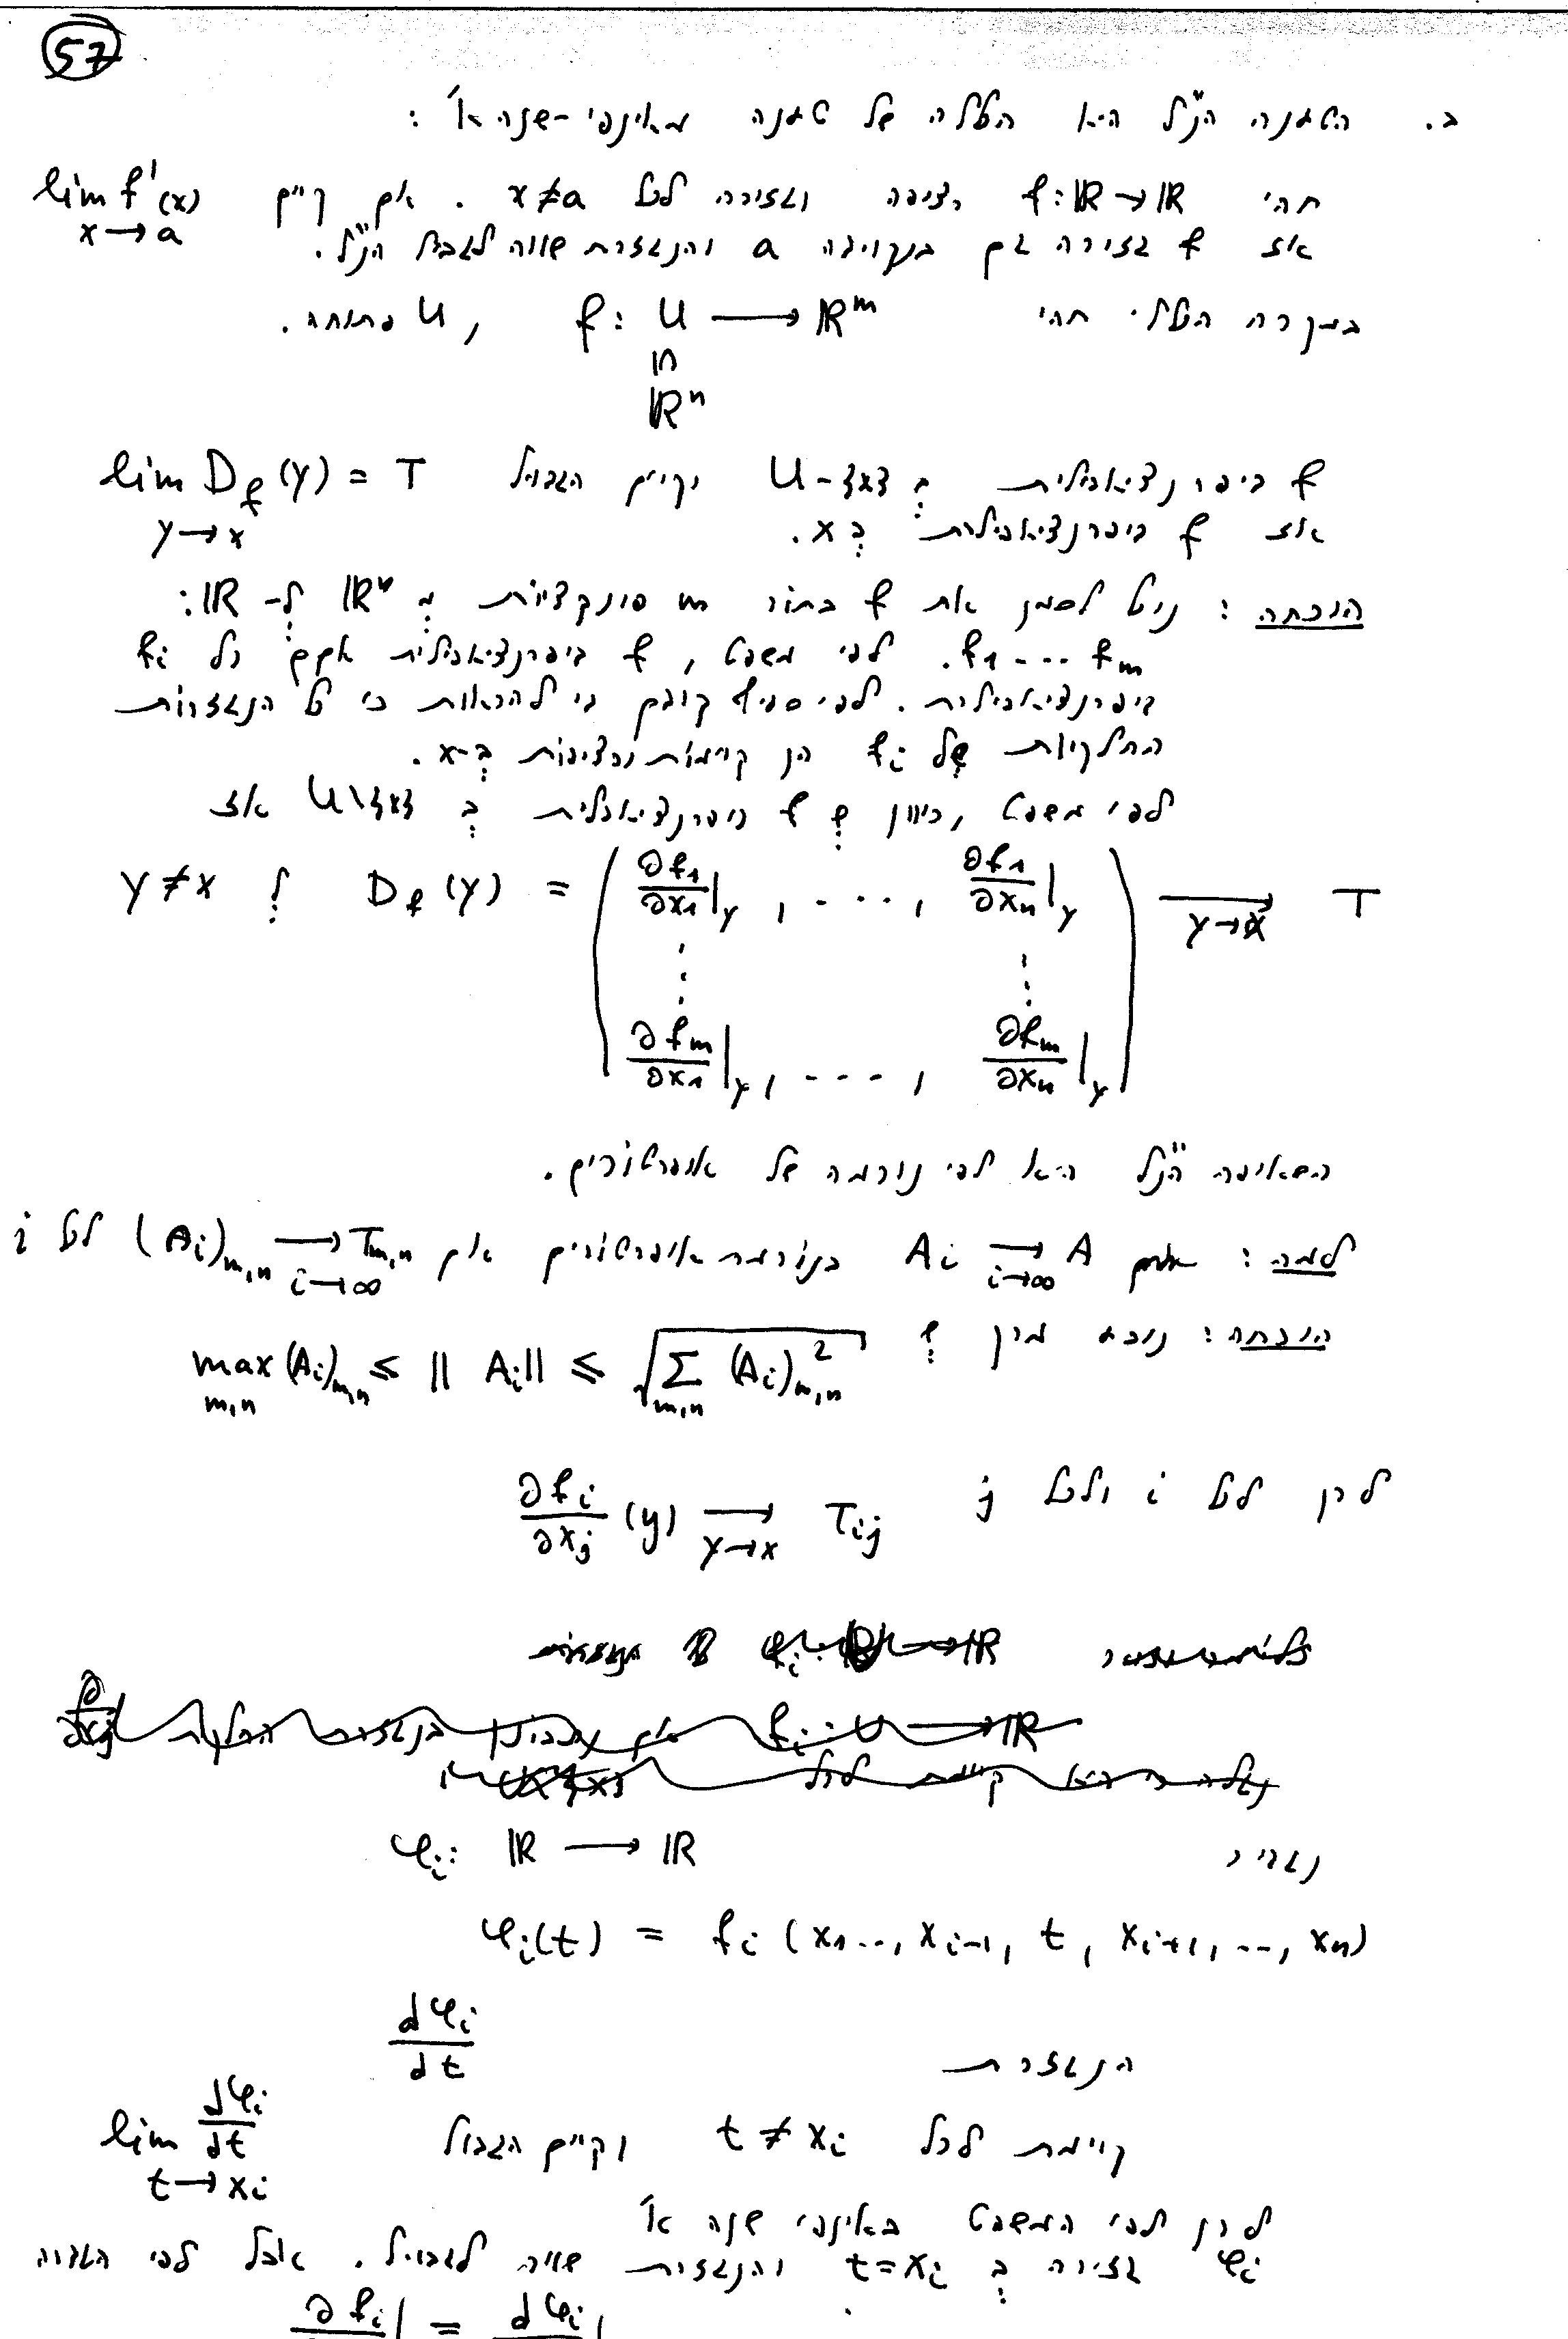 57
ב. הטענה הנ"ל היא הכללה של טענה מאינפי-שנה א':
תהי f: ℝ → ℝ רציפה וגזירה לכל x≠a. אם קיים lim f'(x) x→a
אז f גזירה גם בנקודה a והנגזרת שווה לגבול הנ"ל.
במקרה הכללי תהי f: U → ℝ^m , U פתוחה.
∩|
ℝ^n
f דיפרנציאבילית ב U-{x} וקיים הגבול lim D_f(y) = T y→x
אז f דיפרנציאבילית ב x.
הוכחה: ניתן לסמן את f בתור m פונקציות מ ℝ^n ל- ℝ:
f_1 --- f_m. לפי משפט, f דיפרנציאבילית אמ"מ כל f_i
דיפרנציאבילית. לפי סעיף קודם די להראות כי כל הנגזרות
החלקיות של f_i הן קיימות ורציפות ב-x.
לפי משפט, כיוון ש f דיפרנציאבילית ב U\{x} אז
y≠x ל D_f(y) = ( ∂f_1/∂x_1|_y , ..., ∂f_1/∂x_n|_y ) → y→x T
⋮ ⋮
∂f_m/∂x_1|_y, ---, ∂f_m/∂x_n|_y
השאיפה הנ"ל היא לפי נורמה של אופרטורים.
למה: A_i → i→∞ A בנורמת אופרטורים אם (A_i)_{m,n} → i→∞ T_{m,n} לכל i
הוכחה: נובע מכך ש max_{m,n} (A_i)_{m,n} ≤ || A_i || ≤ √(Σ_{m,n} (A_i)_{m,n}^2)
לכן לכל i ולכל j ∂f_i/∂x_j (y) → y→x T_ij
נגדיר φ_i: ℝ → ℝ
φ_i(t) = f_i (x_1..., x_{i-1}, t, x_{i+1}, ..., x_n)
הנגזרת dφ_i/dt
קיימת לכל t ≠ x_i וקיים הגבול lim dφ_i/dt t→x_i
לכן לפי המשפט באינפי שנה א'
φ_i גזירה ב t=x_i והנגזרת שווה לגבול. אבל לפי הגדרה
∂f_i| = dφ_i|